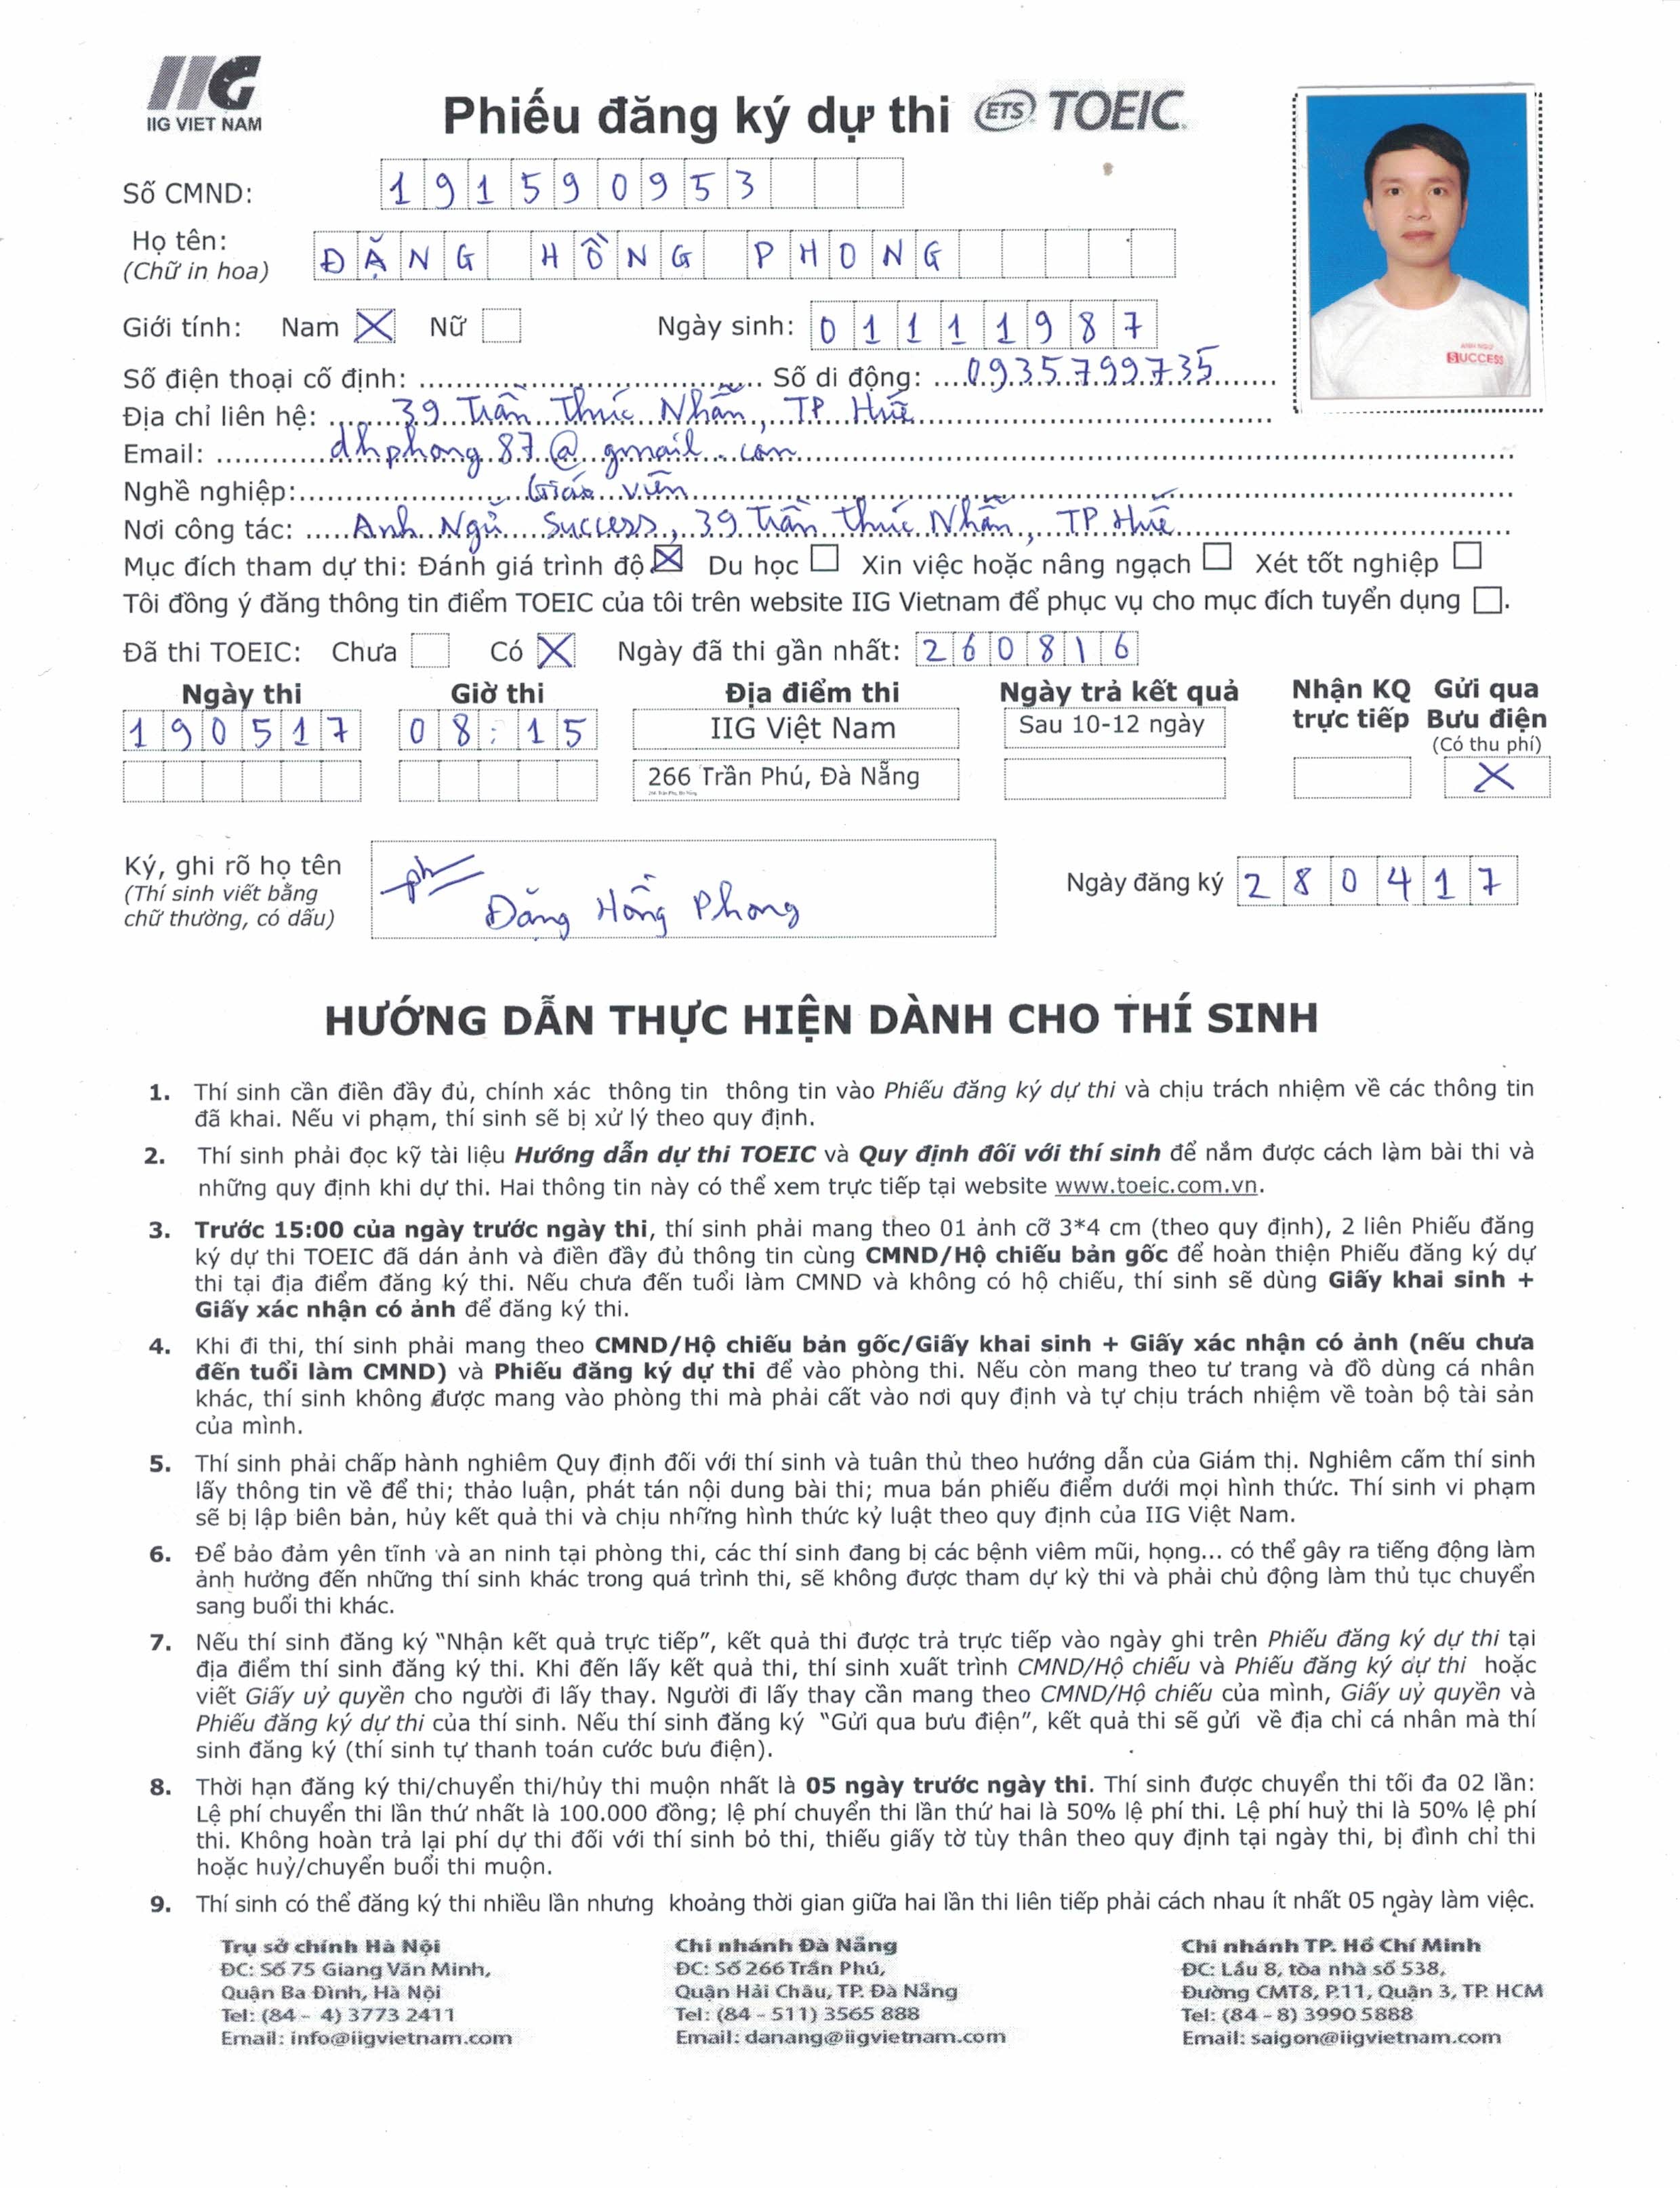 IIG VIET NAM
Phiếu đăng ký dự thi ETS TOEIC
Số CMND: 191590953
Họ tên: ĐẶNG HỒNG PHONG
(Chữ in hoa)
Giới tính: Nam X Nữ Ngày sinh: 01111987
ANH NGỮ
SUCCESS
Số điện thoại cố định: Số di động: 0935799735
Địa chỉ liên hệ: 39 Trần Thúc Nhẫn, TP Huế
Email: dhphong87@gmail.com
Nghề nghiệp: Giáo viên
Nơi công tác: Anh Ngữ Success, 39 Trần Thúc Nhẫn, TP Huế
Mục đích tham dự thi: Đánh giá trình độ X Du học Xin việc hoặc nâng ngạch Xét tốt nghiệp
Tôi đồng ý đăng thông tin điểm TOEIC của tôi trên website IIG Vietnam để phục vụ cho mục đích tuyển dụng .
Đã thi TOEIC: Chưa Có X Ngày đã thi gần nhất: 260816
Ngày thi Giờ thi Địa điểm thi Ngày trả kết quả Nhận KQ trực tiếp Gửi qua Bưu điện
(Có thu phí)
190517 08:15 IIG Việt Nam Sau 10-12 ngày
266 Trần Phú, Đà Nẵng X
266 Trần Phú, Đà Nẵng
Ký, ghi rõ họ tên
(Thí sinh viết bằng
chữ thường, có dấu)
Đặng Hồng Phong
Ngày đăng ký 280417
HƯỚNG DẪN THỰC HIỆN DÀNH CHO THÍ SINH
1. Thí sinh cần điền đầy đủ, chính xác thông tin thông tin vào Phiếu đăng ký dự thi và chịu trách nhiệm về các thông tin
đã khai. Nếu vi phạm, thí sinh sẽ bị xử lý theo quy định.
2. Thí sinh phải đọc kỹ tài liệu Hướng dẫn dự thi TOEIC và Quy định đối với thí sinh để nắm được cách làm bài thi và
những quy định khi dự thi. Hai thông tin này có thể xem trực tiếp tại website www.toeic.com.vn.
3. Trước 15:00 của ngày trước ngày thi, thí sinh phải mang theo 01 ảnh cỡ 3*4 cm (theo quy định), 2 liên Phiếu đăng
ký dự thi TOEIC đã dán ảnh và điền đầy đủ thông tin cùng CMND/Hộ chiếu bản gốc để hoàn thiện Phiếu đăng ký dự
thi tại địa điểm đăng ký thi. Nếu chưa đến tuổi làm CMND và không có hộ chiếu, thí sinh sẽ dùng Giấy khai sinh +
Giấy xác nhận có ảnh để đăng ký thi.
4. Khi đi thi, thí sinh phải mang theo CMND/Hộ chiếu bản gốc/Giấy khai sinh + Giấy xác nhận có ảnh (nếu chưa
đến tuổi làm CMND) và Phiếu đăng ký dự thi để vào phòng thi. Nếu còn mang theo tư trang và đồ dùng cá nhân
khác, thí sinh không được mang vào phòng thi mà phải cất vào nơi quy định và tự chịu trách nhiệm về toàn bộ tài sản
của mình.
5. Thí sinh phải chấp hành nghiêm Quy định đối với thí sinh và tuân thủ theo hướng dẫn của Giám thị. Nghiêm cấm thí sinh
lấy thông tin về đề thi; thảo luận, phát tán nội dung bài thi; mua bán phiếu điểm dưới mọi hình thức. Thí sinh vi phạm
sẽ bị lập biên bản, hủy kết quả thi và chịu những hình thức kỷ luật theo quy định của IIG Việt Nam.
6. Để bảo đảm yên tĩnh và an ninh tại phòng thi, các thí sinh đang bị các bệnh viêm mũi, họng... có thể gây ra tiếng động làm
ảnh hưởng đến những thí sinh khác trong quá trình thi, sẽ không được tham dự kỳ thi và phải chủ động làm thủ tục chuyển
sang buổi thi khác.
7. Nếu thí sinh đăng ký “Nhận kết quả trực tiếp”, kết quả thi được trả trực tiếp vào ngày ghi trên Phiếu đăng ký dự thi tại
địa điểm thí sinh đăng ký thi. Khi đến lấy kết quả thi, thí sinh xuất trình CMND/Hộ chiếu và Phiếu đăng ký dự thi hoặc
viết Giấy uỷ quyền cho người đi lấy thay. Người đi lấy thay cần mang theo CMND/Hộ chiếu của mình, Giấy uỷ quyền và
Phiếu đăng ký dự thi của thí sinh. Nếu thí sinh đăng ký “Gửi qua bưu điện”, kết quả thi sẽ gửi về địa chỉ cá nhân mà thí
sinh đăng ký (thí sinh tự thanh toán cước bưu điện).
8. Thời hạn đăng ký thi/chuyển thi/hủy thi muộn nhất là 05 ngày trước ngày thi. Thí sinh được chuyển thi tối đa 02 lần:
Lệ phí chuyển thi lần thứ nhất là 100.000 đồng; lệ phí chuyển thi lần thứ hai là 50% lệ phí thi. Lệ phí huỷ thi là 50% lệ phí
thi. Không hoàn trả lại phí dự thi đối với thí sinh bỏ thi, thiếu giấy tờ tùy thân theo quy định tại ngày thi, bị đình chỉ thi
hoặc huỷ/chuyển buổi thi muộn.
9. Thí sinh có thể đăng ký thi nhiều lần nhưng khoảng thời gian giữa hai lần thi liên tiếp phải cách nhau ít nhất 05 ngày làm việc.
Trụ sở chính Hà Nội
ĐC: Số 75 Giang Văn Minh,
Quận Ba Đình, Hà Nội
Tel: (84 - 4) 3773 2411
Email: info@iigvietnam.com
Chi nhánh Đà Nẵng
ĐC: Số 266 Trần Phú,
Quận Hải Châu, TP. Đà Nẵng
Tel: (84 - 511) 3565 888
Email: danang@iigvietnam.com
Chi nhánh TP. Hồ Chí Minh
ĐC: Lầu 8, tòa nhà số 538,
Đường CMT8, P.11, Quận 3, TP. HCM
Tel: (84 - 8) 3990 5888
Email: saigon@iigvietnam.com